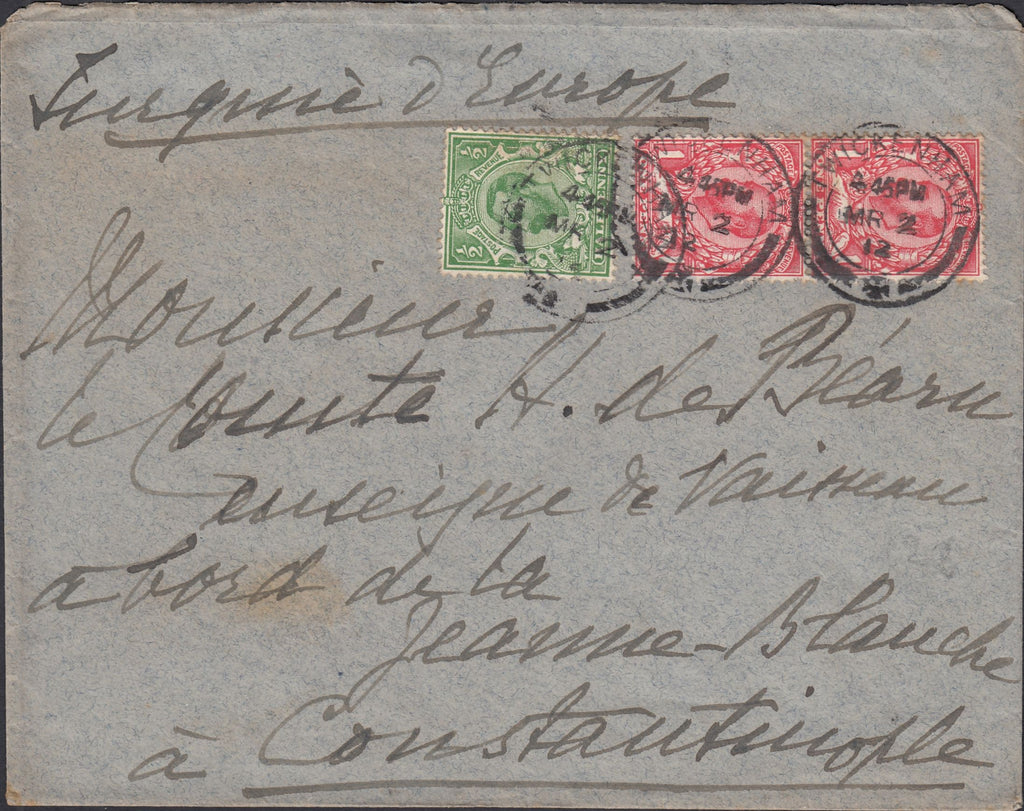 Turquie d'Europe
½ REVENUE POSTAGE ½
TWICKENHAM
4.45PM
MR 2
12
TWICKENHAM
4.45PM
MR 2
12
TWICKENHAM
4.45PM
MR 2
12
Monsieur
le Comte H. de Béarn
enseigne de Vaisseau
a bord de la
Jeanne-Blanche
à Constantinople